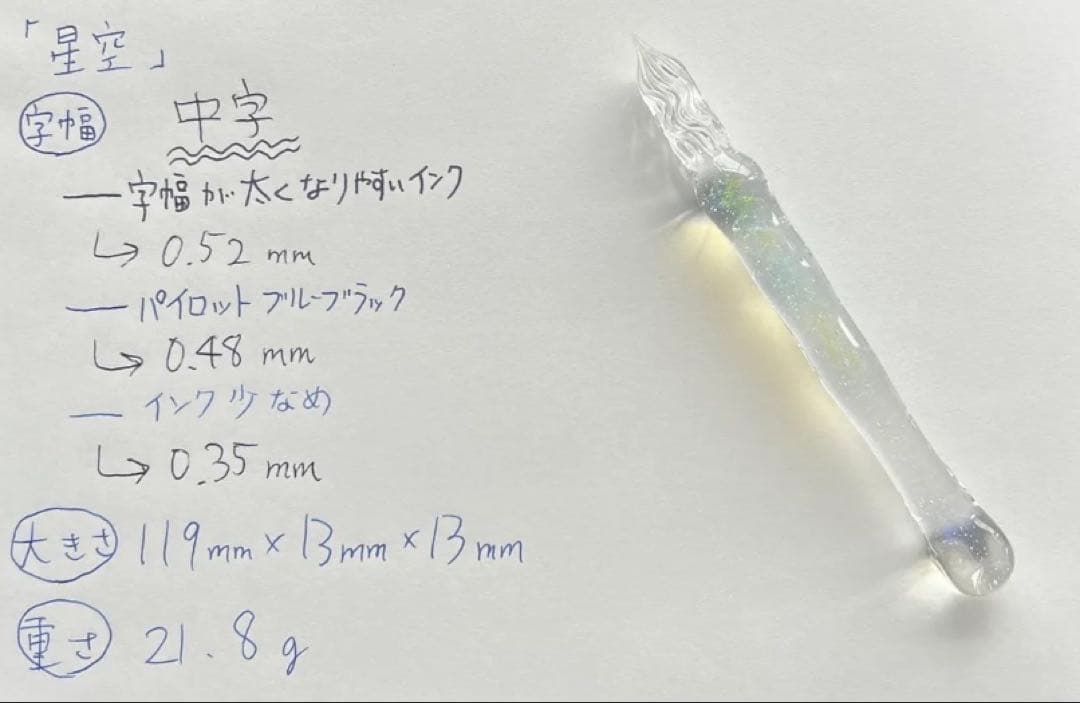 「星空」
字幅 中字
― 字幅が太くなりやすいインク
↳ 0.52 mm
― パイロット ブルーブラック
↳ 0.48 mm
― インク少なめ
↳ 0.35 mm
大きさ 119mm×13mm×13mm
重さ 21.8g